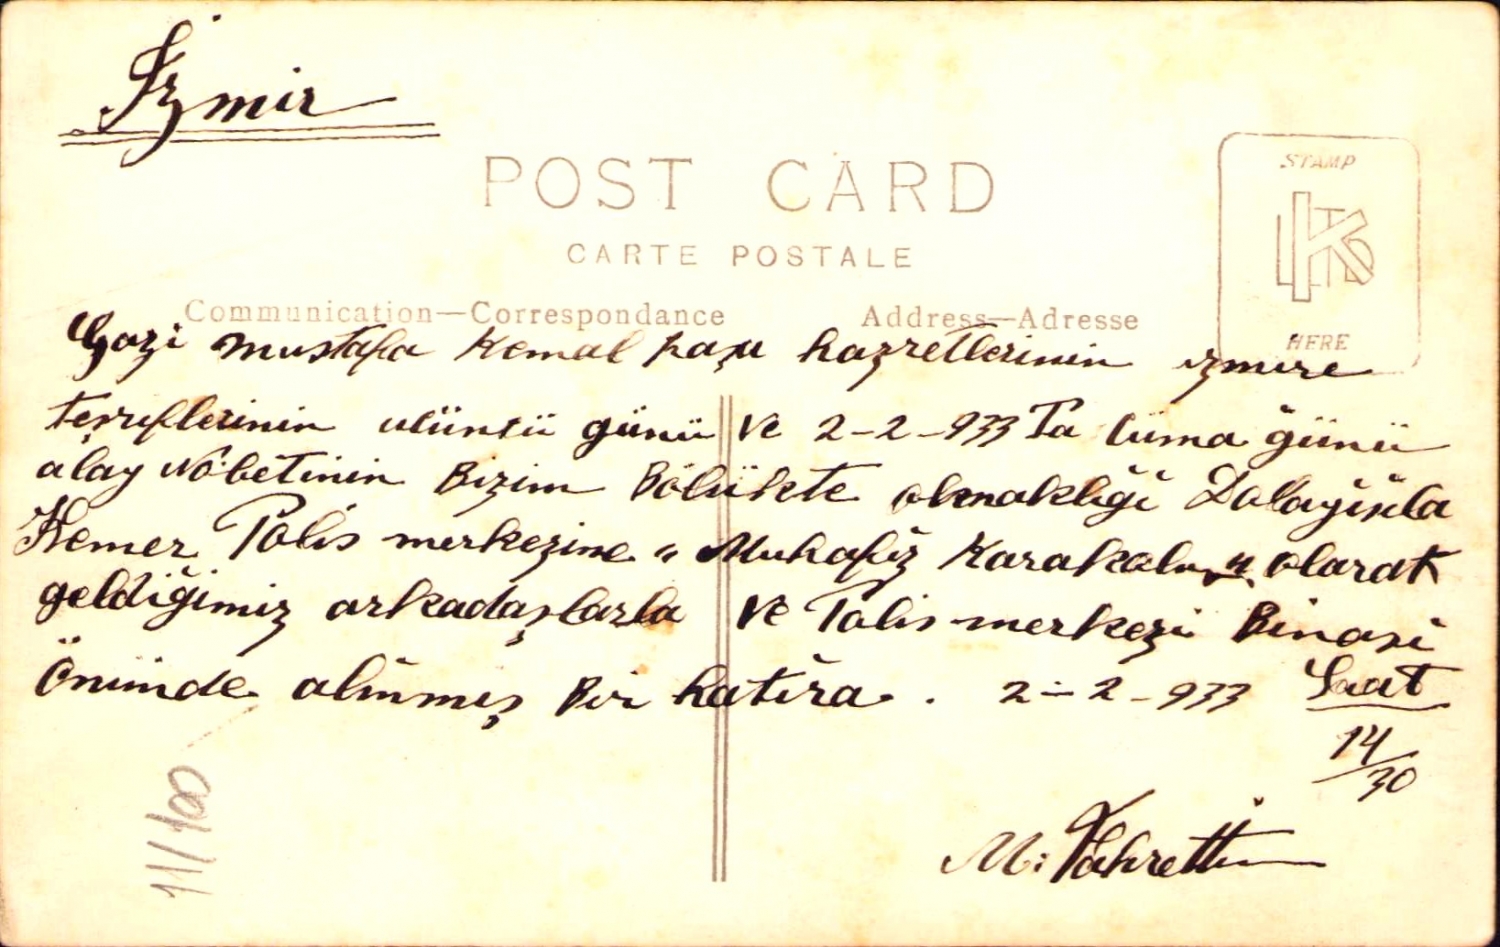 İzmir
POST CARD
CARTE POSTALE
STAMP
HERE
Communication—Correspondance
Address—Adresse
Gazi mustafa Kemal paşa hazretlerinin izmire
teşriflerinin üçüncü günü ve 2-2-933 Ta Cüma günü
alay Nöbetinin Bizim Bölükte olmakliği Dolayisila
Kemer Polis merkezine „ Muhafiz Karakolu „ olarak
geldiğimiz arkadaşlarla ve Polis merkezi Binasi
önünde alinmiş Bir hatira. 2-2-933 Saat
14/30
M: Fahrettin
11/100